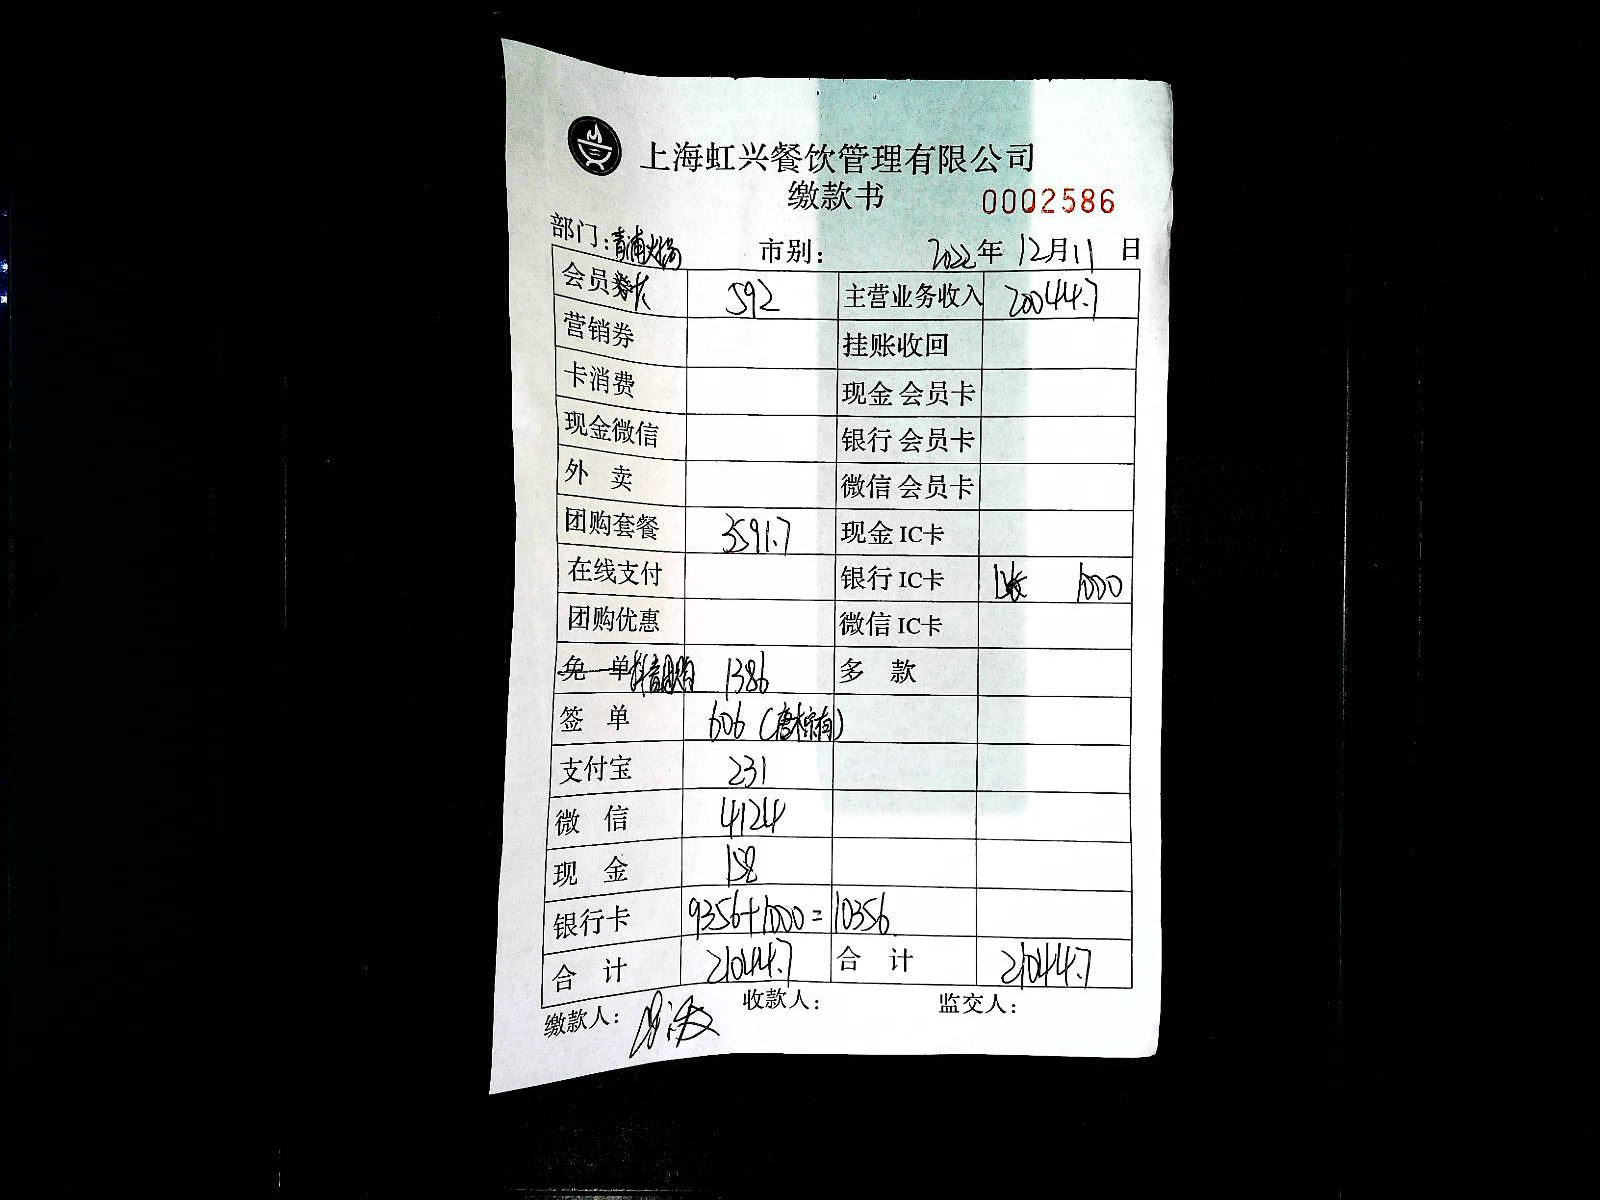 上海虹兴餐饮管理有限公司
缴款书 0002586
部门：青浦 市别： 2022年12月11日
会员 592 主营业务收入 20044.7
营销券 挂账收回
卡消费 现金 会员卡
现金微信 银行 会员卡
外 卖 微信 会员卡
团购套餐 3591.7 现金 IC卡
在线支付 银行 IC卡 1张 1000
团购优惠 微信 IC卡
免 单 抖音团购 1386 多 款
签 单 606
支付宝 231
微 信 4124
现 金 158
银行卡 9356+1000=10356
合 计 21044.7 合 计 21044.7
缴款人： 收款人： 监交人：